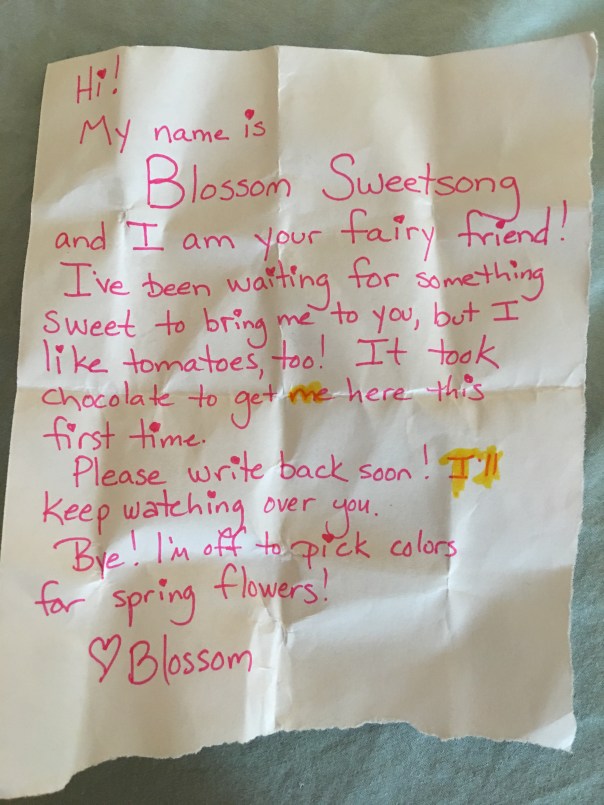 Hi!
My name is
Blossom Sweetsong
and I am your fairy friend!
I've been waiting for something
sweet to bring me to you, but I
like tomatoes, too! It took
chocolate to get me here this
first time.
Please write back soon! I'll
keep watching over you.
Bye! I'm off to pick colors
for spring flowers!
♡ Blossom